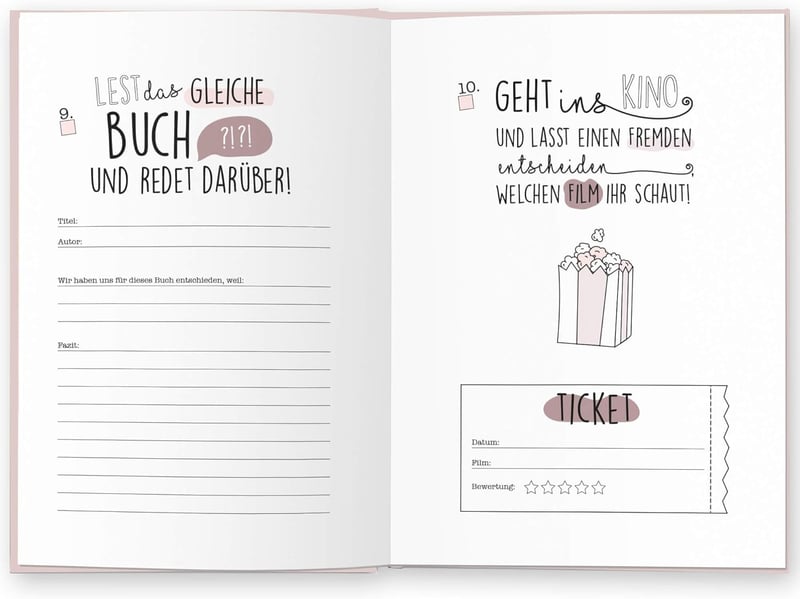 9.
LEST das GLEICHE
BUCH ?!?!
UND REDET DARÜBER!
Titel:
Autor:
Wir haben uns für dieses Buch entschieden, weil:
Fazit:
10.
GEHT ins KINO
UND LASST EINEN FREMDEN
entscheiden,
WELCHEN FILM IHR SCHAUT!
TICKET
Datum:
Film:
Bewertung: